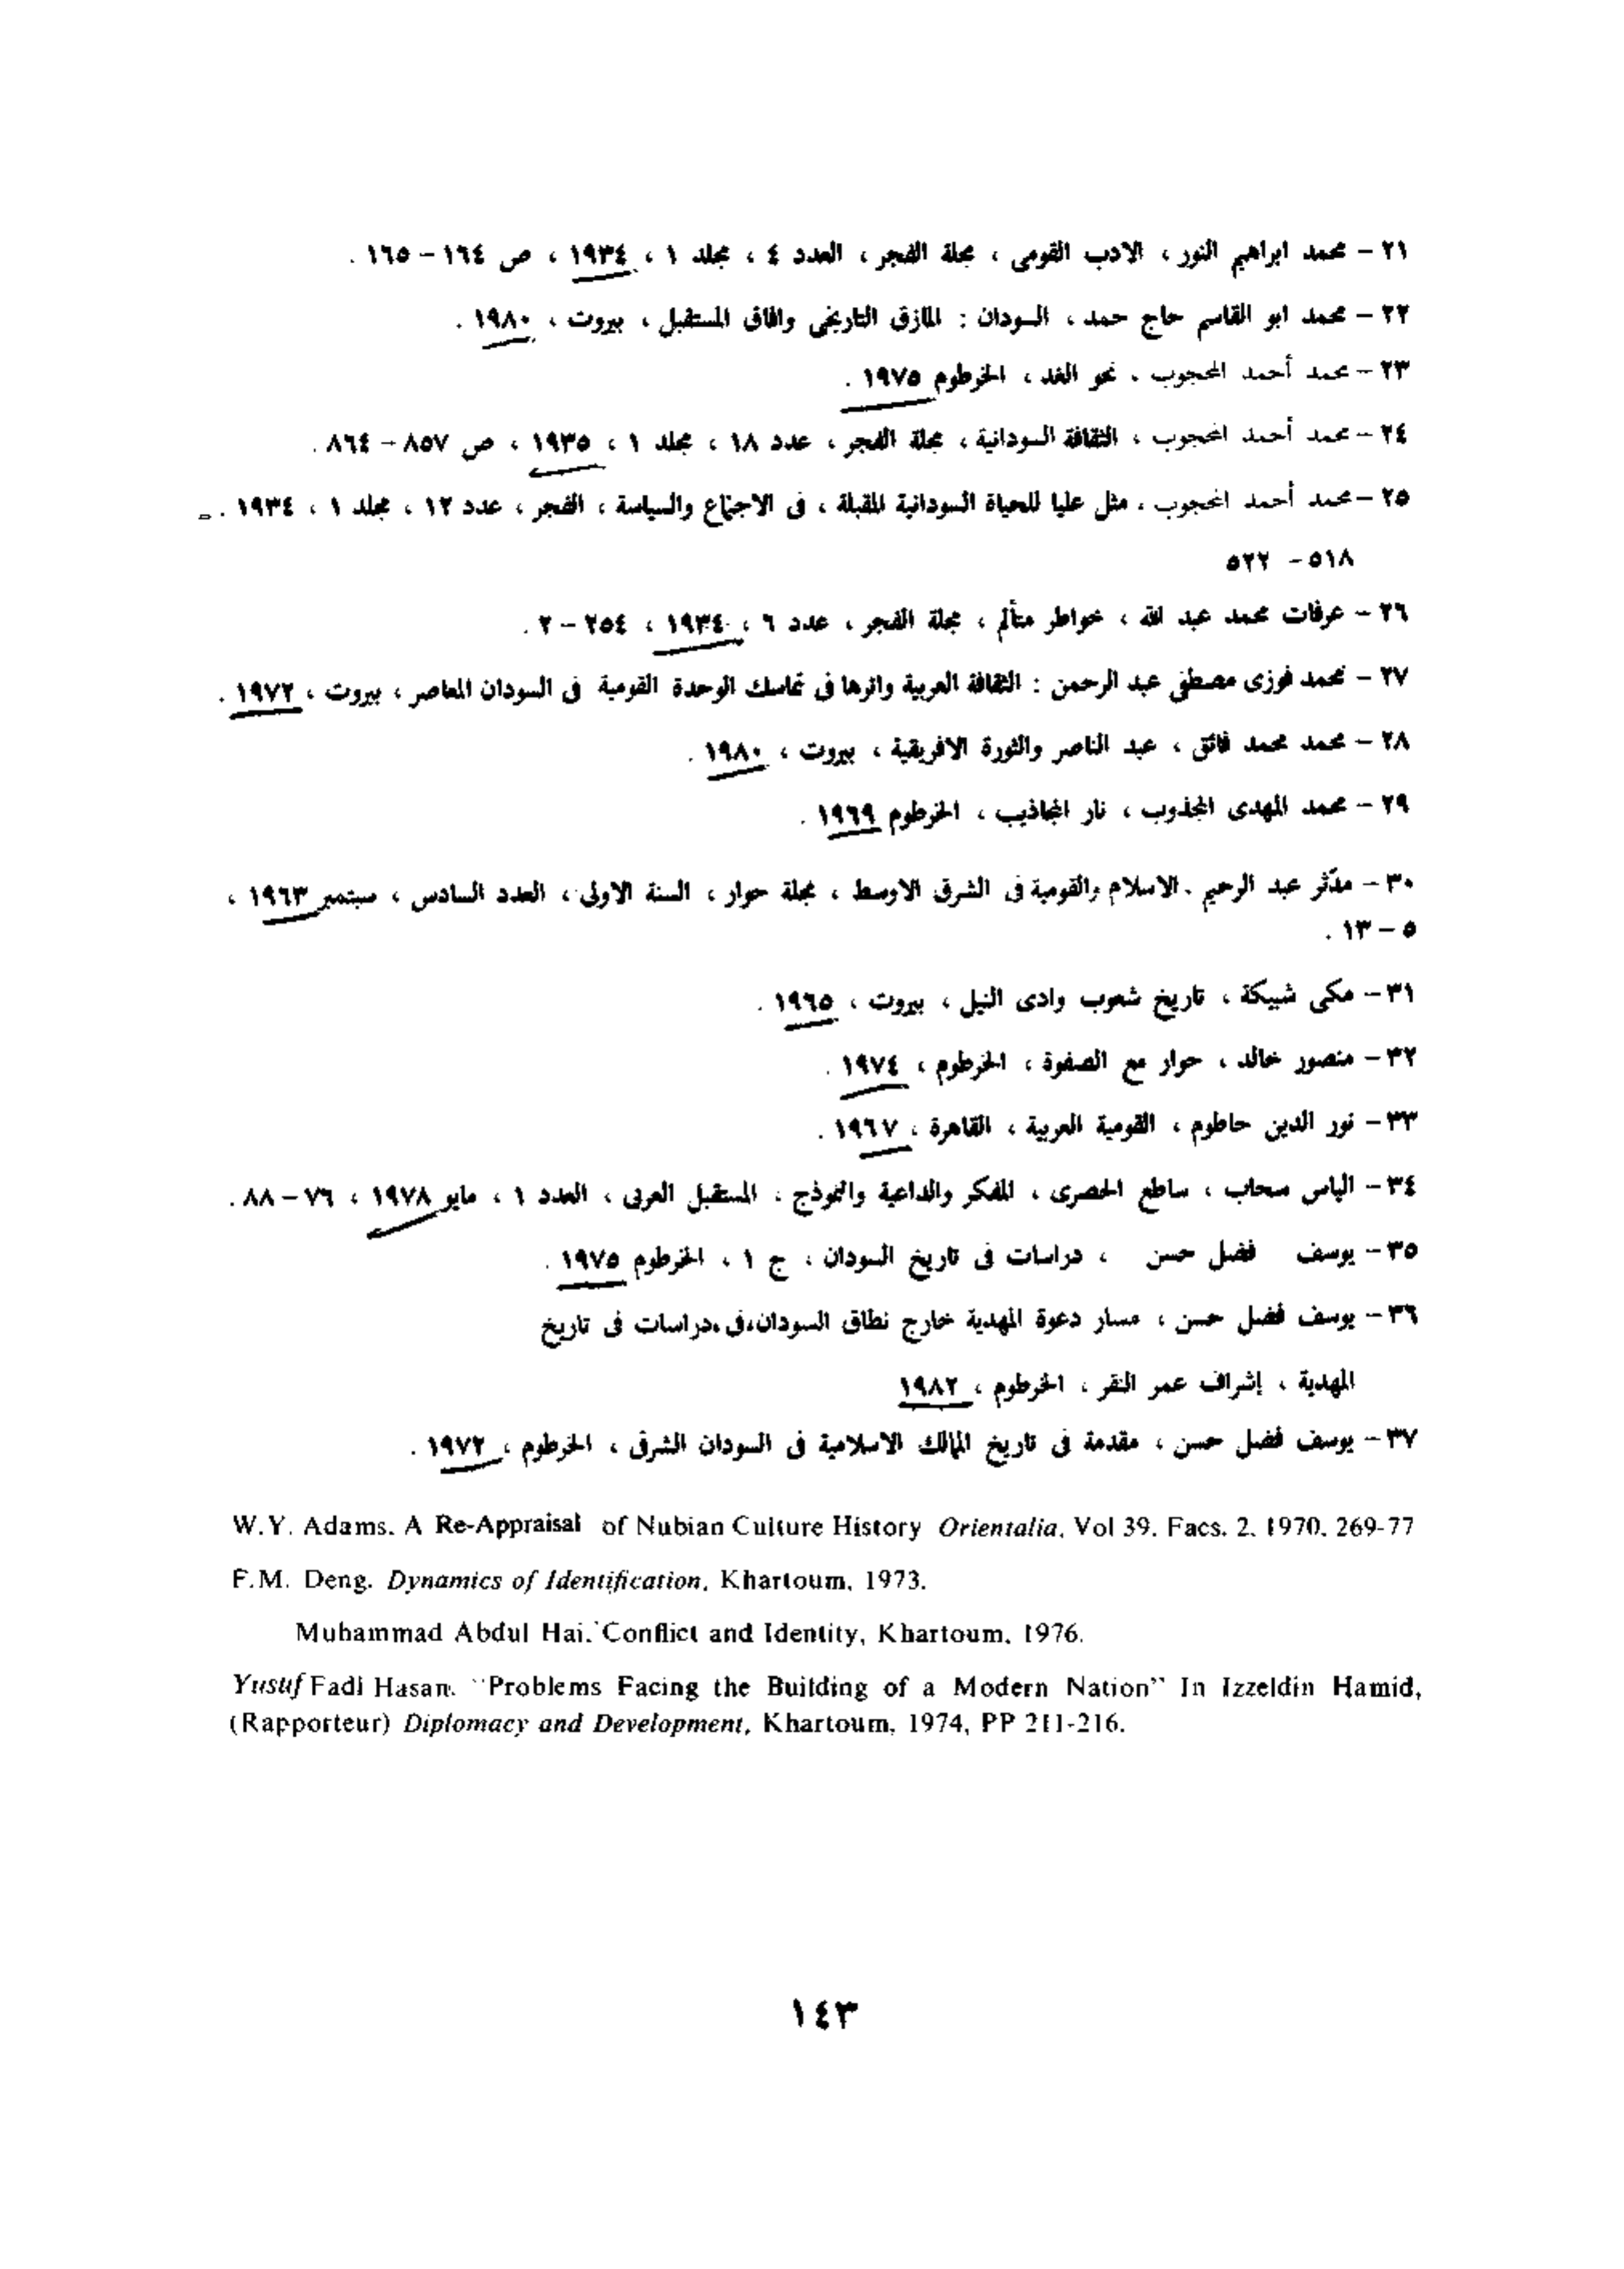 ٢١ – محمد ابراهيم النور ، الادب القومى ، مجلة الفجر ، العدد ٤ ، مجلد ١ ، ١٩٣٤ ، ص ١٦٤ – ١٦٥ .
٢٢ – محمد ابو القاسم حاج حمد ، السودان : المازق التاريخى وافاق المستقبل ، بيروت ، ١٩٨٠ .
٢٣ – محمد أحمد المحجوب ، نحو الغد ، الخرطوم ١٩٧٥ .
٢٤ – محمد أحمد المحجوب ، الثقافة السودانية ، مجلة الفجر ، عدد ١٨ ، مجلد ١ ، ١٩٣٥ ، ص ٨٥٧ – ٨٦٤ .
٢٥ – محمد أحمد المحجوب ، مثل عليا للحياة السودانية المقبلة ، فى الاجتماع والسياسة ، الفجر ، عدد ١٢ ، مجلد ١ ، ١٩٣٤ .
٥١٨ – ٥٢٢
٢٦ – عرفات محمد عبد الله ، خواطر متألم ، مجلة الفجر ، عدد ٦ ، ١٩٣٤ ، ٢٥٤ – ٢ .
٢٧ – محمد فوزى مصطفى عبد الرحمن : الثقافة العربية واثرها فى تماسك الوحدة القومية فى السودان المعاصر ، بيروت ، ١٩٧٢ .
٢٨ – محمد محمد فائق ، عبد الناصر والثورة الافريقية ، بيروت ، ١٩٨٠ .
٢٩ – محمد المهدى المجذوب ، نار المجاذيب ، الخرطوم ١٩٦٩ .
٣٠ – مدّثر عبد الرحيم . الاسلام والقومية فى الشرق الاوسط ، مجلة حوار ، السنة الاولى ، العدد السادس ، سبتمبر ١٩٦٣ ،
٥ – ١٣ .
٣١ – مكى شبيكة ، تاريخ شعوب وادى النيل ، بيروت ، ١٩٦٥ .
٣٢ – منصور خالد ، حوار مع الصفوة ، الخرطوم ، ١٩٧٤ .
٣٣ – نور الدين حاطوم ، القومية العربية ، القاهرة ، ١٩٦٧ .
٣٤ – الياس سحاب ، ساطع الحصرى ، المفكر والداعية والنموذج ، المستقبل العربى ، العدد ١ ، مايو ١٩٧٨ ، ٧٦ – ٨٨ .
٣٥ – يوسف فضل حسن ، دراسات فى تاريخ السودان ، ج ١ ، الخرطوم ١٩٧٥ .
٣٦ – يوسف فضل حسن ، مسار دعوة المهدية خارج نطاق السودان، فى ،دراسات فى تاريخ
المهدية ، إشراف عمر النقر ، الخرطوم ، ١٩٨٢
٣٧ – يوسف فضل حسن ، مقدمة فى تاريخ الممالك الاسلامية فى السودان الشرقى ، الخرطوم ، ١٩٧٢ .
W.Y. Adams. A Re-Appraisal of Nubian Culture History Orientalia, Vol 39. Facs. 2. 1970. 269-77
F.M. Deng. Dynamics of Identification, Khartoum, 1973.
Muhammad Abdul Hai. Conflict and Identity, Khartoum, 1976.
Yusuf Fadl Hasan. "Problems Facing the Building of a Modern Nation" In Izzeldin Hamid,
(Rapporteur) Diplomacy and Development, Khartoum, 1974, PP 211-216.
١٤٣